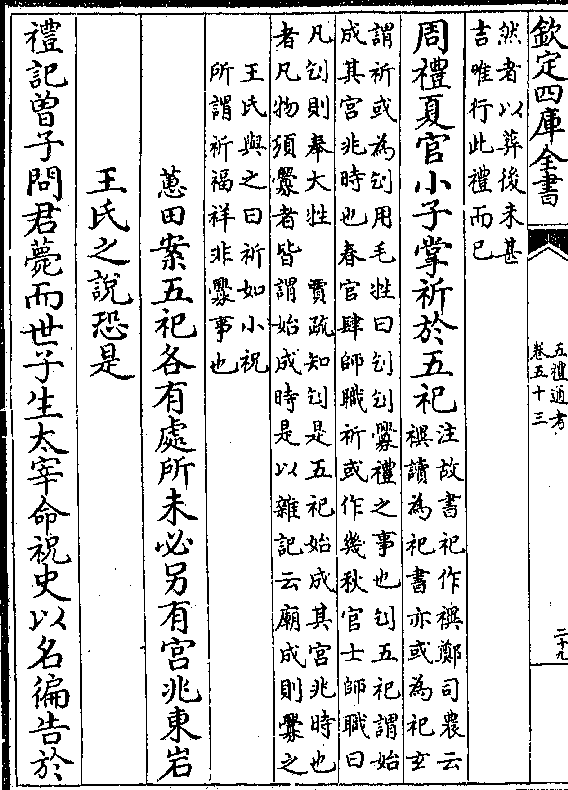 欽定四庫全書
五禮通考
卷五十三
二十九
然者以葬後未甚
吉唯行此禮而已
周禮夏官小子掌祈於五祀
注故書祀作禩鄭司農云
禩讀為祀書亦或為祀玄
謂祈或為刉用毛牲曰刉刉釁禮之事也刉五祀謂始
成其宫兆時也春官肆師職祈或作幾秋官士師職曰
凡刉則奉犬牲　賈疏知刉是五祀始成其宫兆時也
者凡物須釁者皆謂始成時是以雜記云廟成則釁之
王氏與之曰祈如小祝
所謂祈福祥非釁事也
蕙田案五祀各有處所未必另有宫兆東岩
王氏之說恐是
禮記曽子問君薨而世子生太宰命祝史以名徧告於